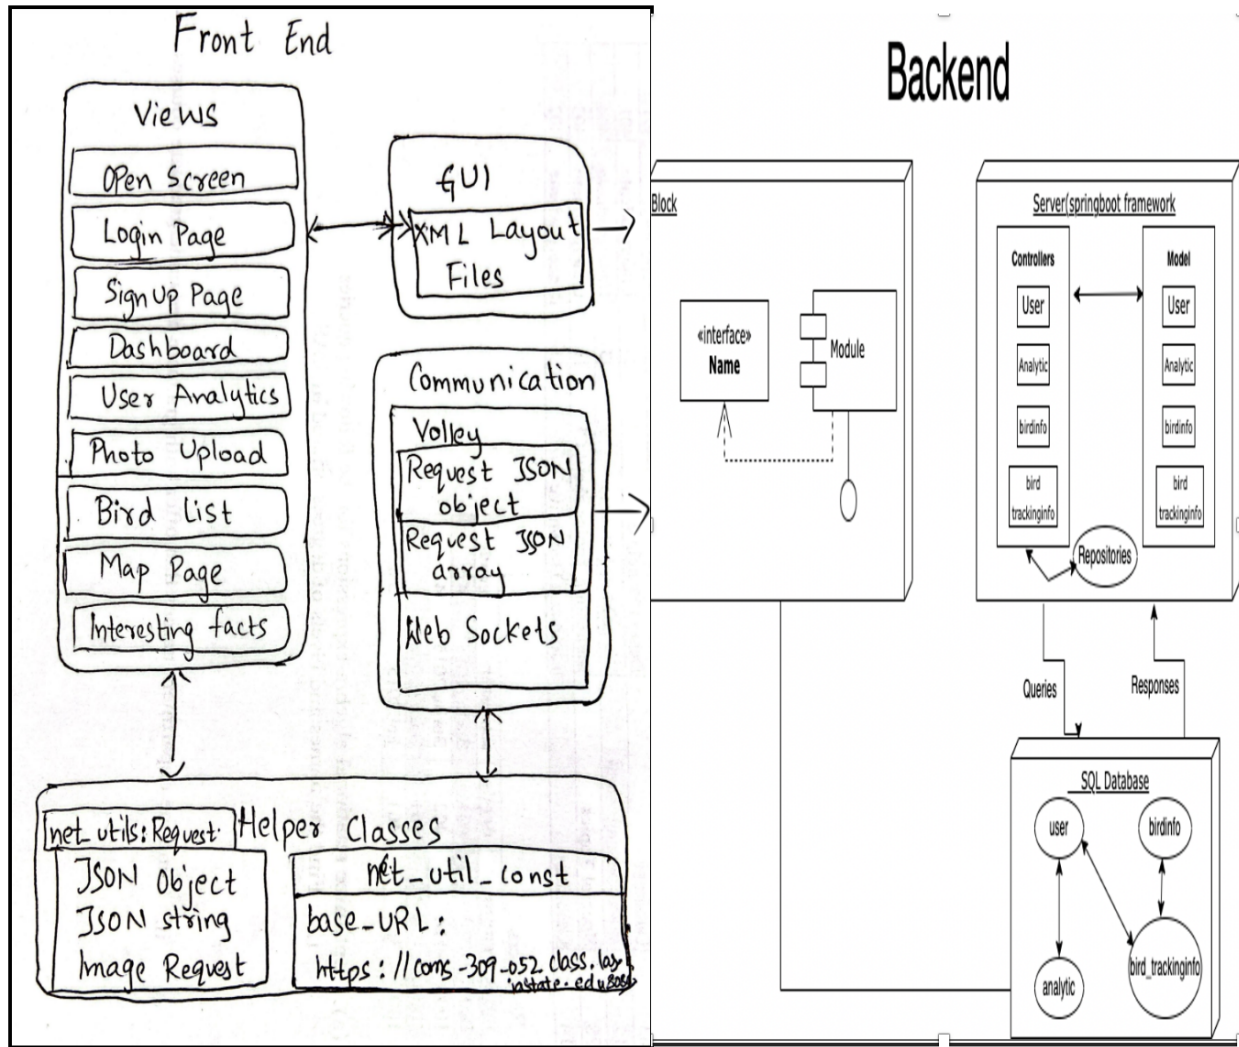 Front End
Views
Open Screen
Login Page
SignUp Page
Dashboard
User Analytics
Photo Upload
Bird List
Map Page
Interesting facts
GUI
XML Layout
Files
Communication
Volley
Request JSON
object
Request JSON
array
Web Sockets
Helper Classes
net_utils:Request
JSON Object
JSON string
Image Request
net_util_const
base_URL:
https://coms-309-052.class.las
Backend
Block
«interface»
Name
Module
Server(springboot framework
Controllers
User
Analytic
birdinfo
bird
trackinginfo
Model
User
Analytic
birdinfo
bird
trackinginfo
Repositories
Queries
Responses
SQL Database
user
birdinfo
analytic
bird_trackinginfo